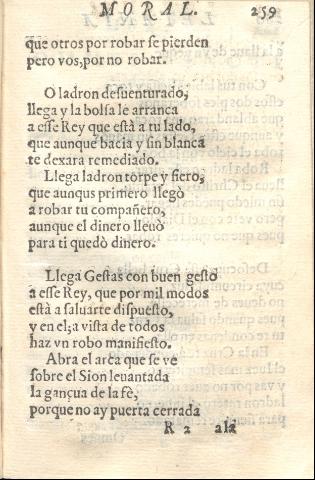 MORAL. 259
que otros por robar se pierden
pero vos,por no robar.
O ladron desuenturado,
llega y la bolsa le arranca
a esse Rey que està a tu lado,
que aunque bacia y sin blanca
te dexara remediado.
Llega ladron torpe y fiero,
que aunqus primero llegò
a robar tu compañero,
aunque el dinero lleuò
para ti quedò dinero.
Llega Gestas con buen gesto
a esse Rey, que por mil modos
està a saluarte dispuesto,
y en el;a vista de todos
haz vn robo manifiesto.
Abra el arca que se ve
sobre el Sion leuantada
la gançua de la fè,
porque no ay puerta cerrada
R 2 ala